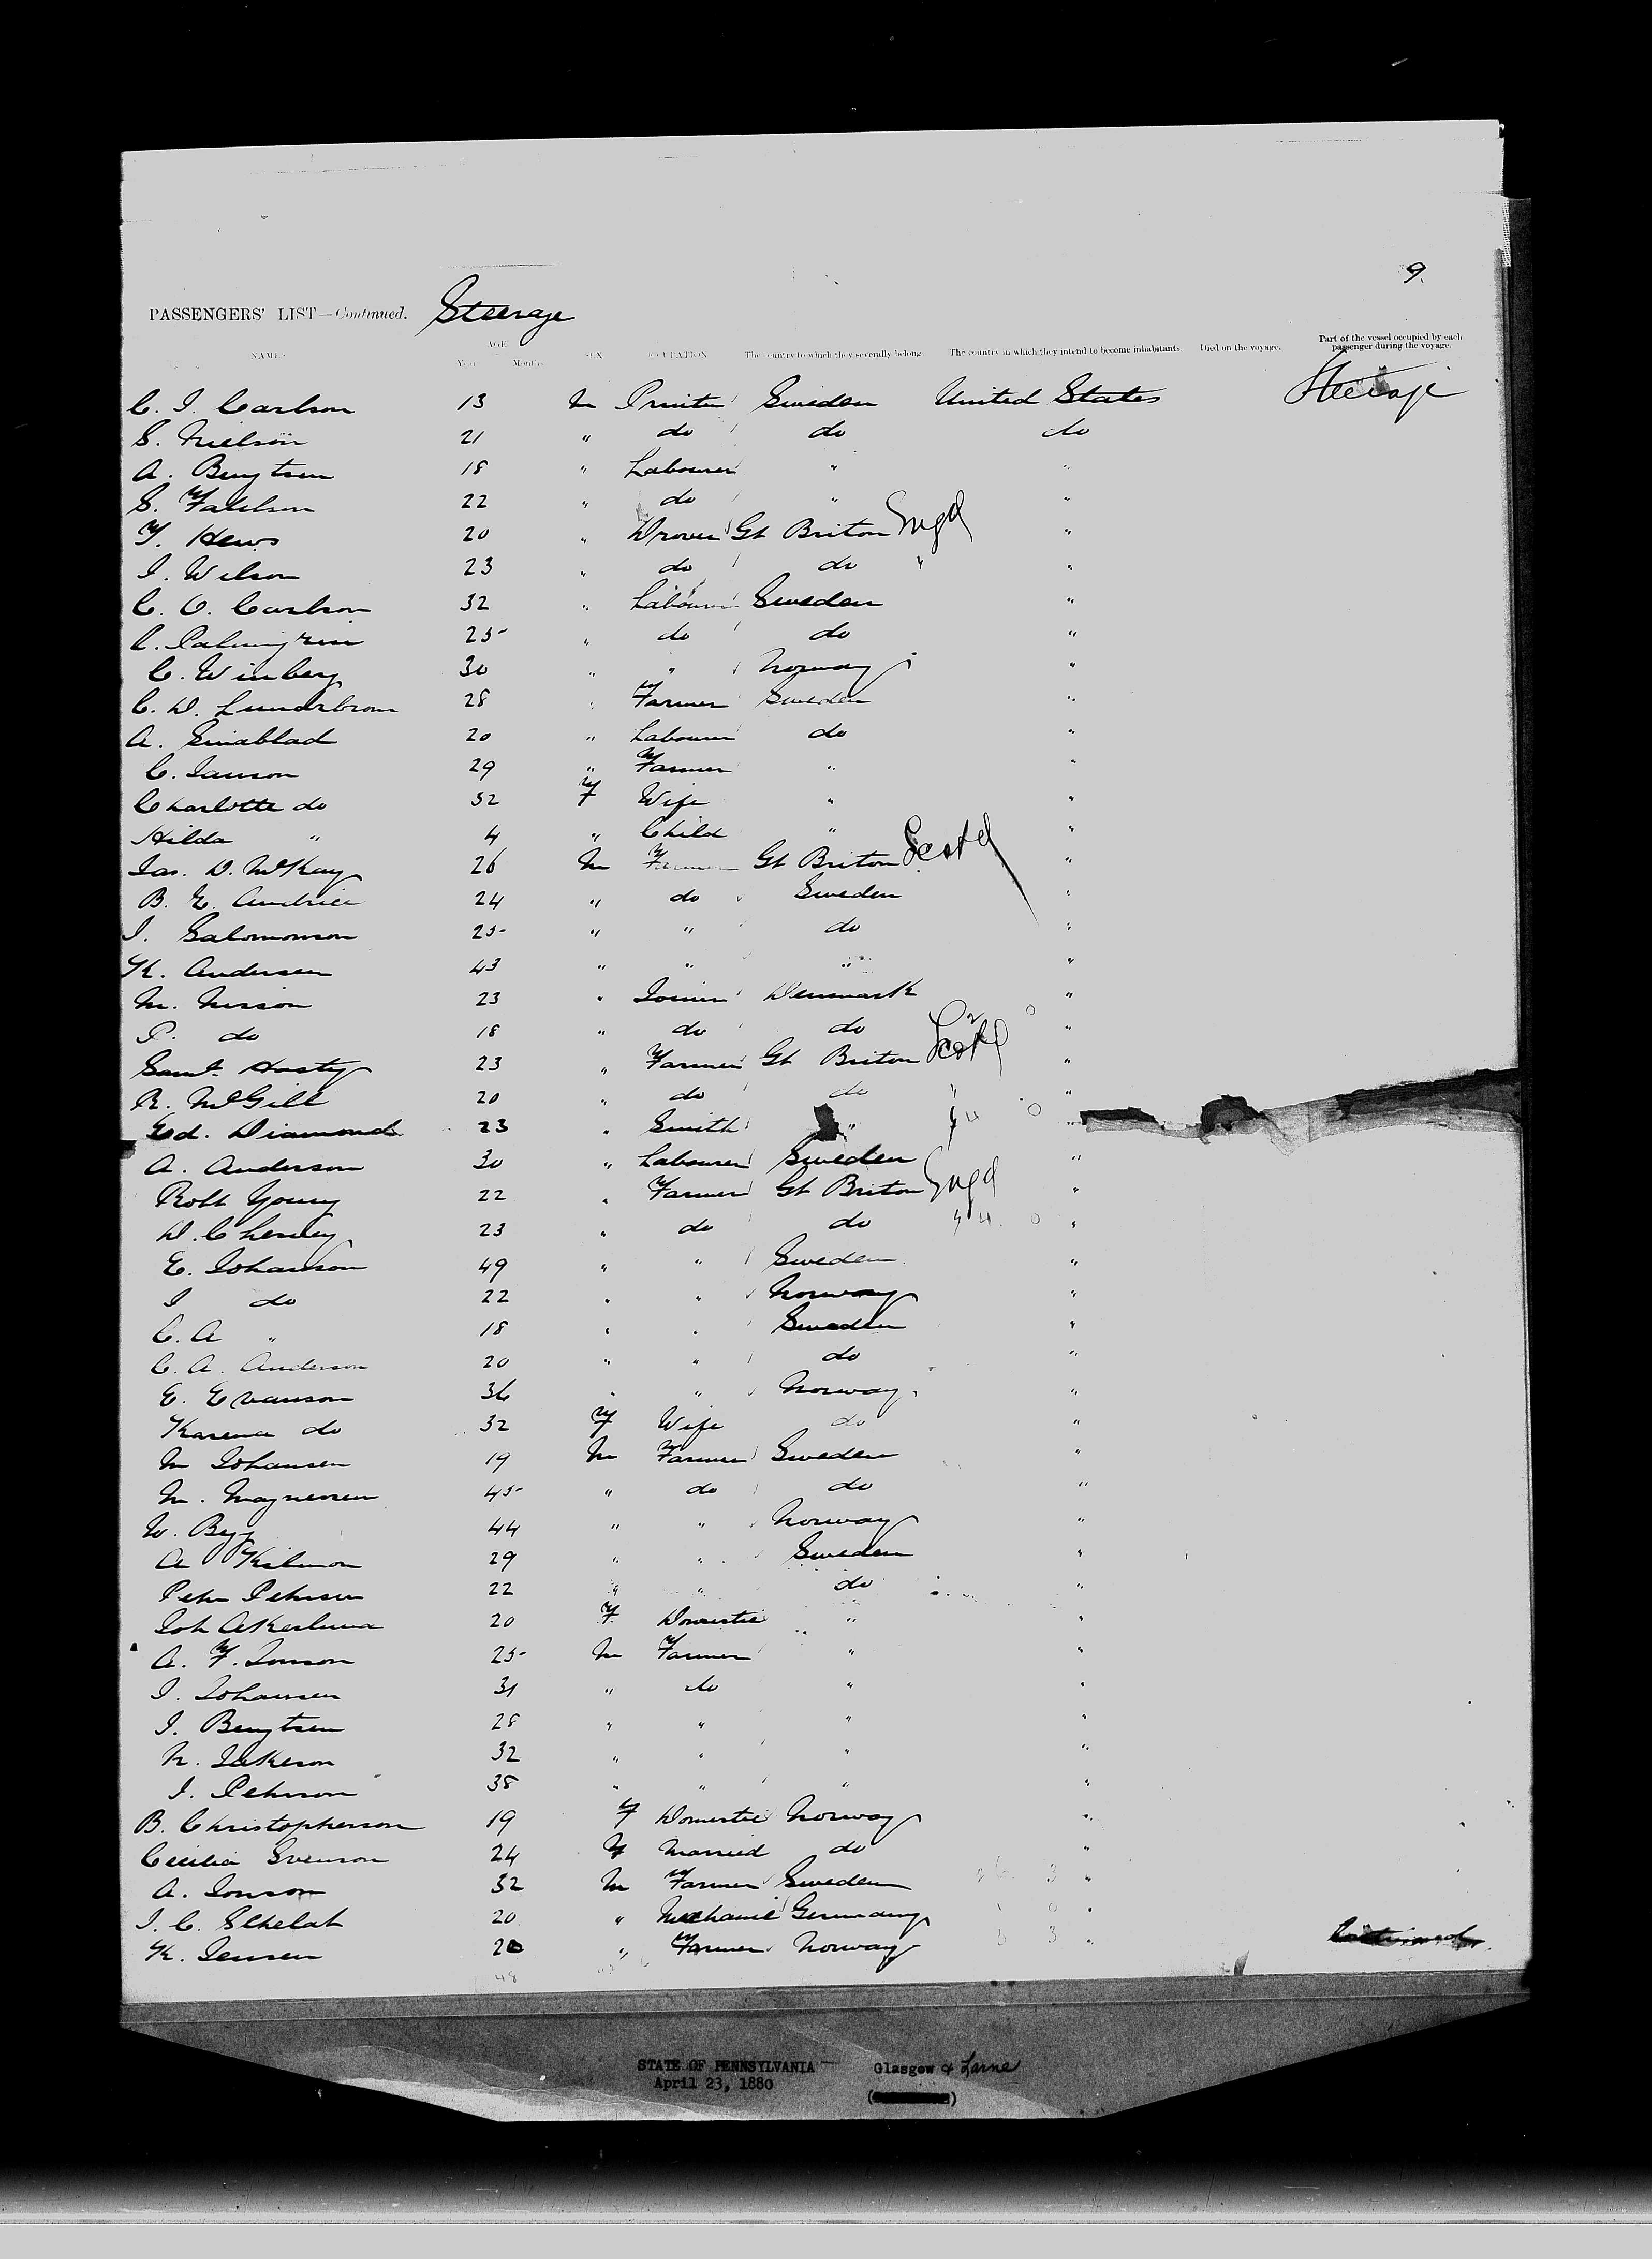 9.
PASSENGERS' LIST—Continued. Steerage
NAMES AGE Years Months SEX OCCUPATION The country to which they severally belong The country in which they intend to become inhabitants. Died on the voyage. Part of the vessel occupied by each passenger during the voyage.
C. J. Carlson 13 M Printer Sweden United States Steerage
S. Nielson 21 " do do do
A. Bengtsen 18 " Labourer " "
S. 22 " do " "
F. Hews 20 " Drover Gt Briton Engd "
J. Wilson 23 " do do " "
C. O. Carlson 32 " Labourer Sweden "
C. Palmgren 25 " do do "
C. Winberg 30 " " Norway "
C. D. Lundstrom 28 " Farmer Sweden "
A. Smablad 20 " Labourer do "
C. Janson 29 " Farmer " "
Charlotte do 32 F Wife " "
Hilda " 4 " Child " "
Jas. D. McKay 26 M Farmer Gt Briton Scotd "
B. E. 24 " do Sweden "
J. Salomonson 25 " " do "
K. Andersen 43 " " " "
M. Nisson 23 " Joiner Denmark "
P. do 18 " do do "
Saml. Hasty 23 " Farmer Gt Briton Scotd "
R. McGill 20 " do do " "
Ed. Diamond 23 " Smith " "
A. Anderson 30 " Labourer Sweden "
Robt Young 22 " Farmer Gt Briton Engd "
D. Chesley 23 " do do "
E. Johanson 49 " " Sweden "
J do 22 " " Norway "
C. A " 18 " " Sweden "
C. A. Anderson 20 " " do "
E. Evanson 36 " " Norway "
Karena do 32 F Wife do "
M Johansen 19 M Farmer Sweden "
M. Magnesen 45 " do do "
W. Beg 44 " " Norway "
A Kilmon 29 " " Sweden "
Peter Pehrsen 22 " " do "
Joh Akerlund 20 F Domestic " "
A. F. Jonson 25 M Farmer " "
J. Johansen 31 " do " "
J. Bengtsen 28 " " " "
N. Jakeson 32 " " " "
J. Pehrson 38 " " " "
B. Christopherson 19 F Domestic Norway "
Cecilia Svenson 24 F Married do "
A. Jonson 32 M Farmer Sweden "
J. C. Schelat 20 " Mechanic Germany "
K. Jensen 20 " Farmer Norway "
STATE OF PENNSYLVANIA Glasgow & Larne
April 23, 1880